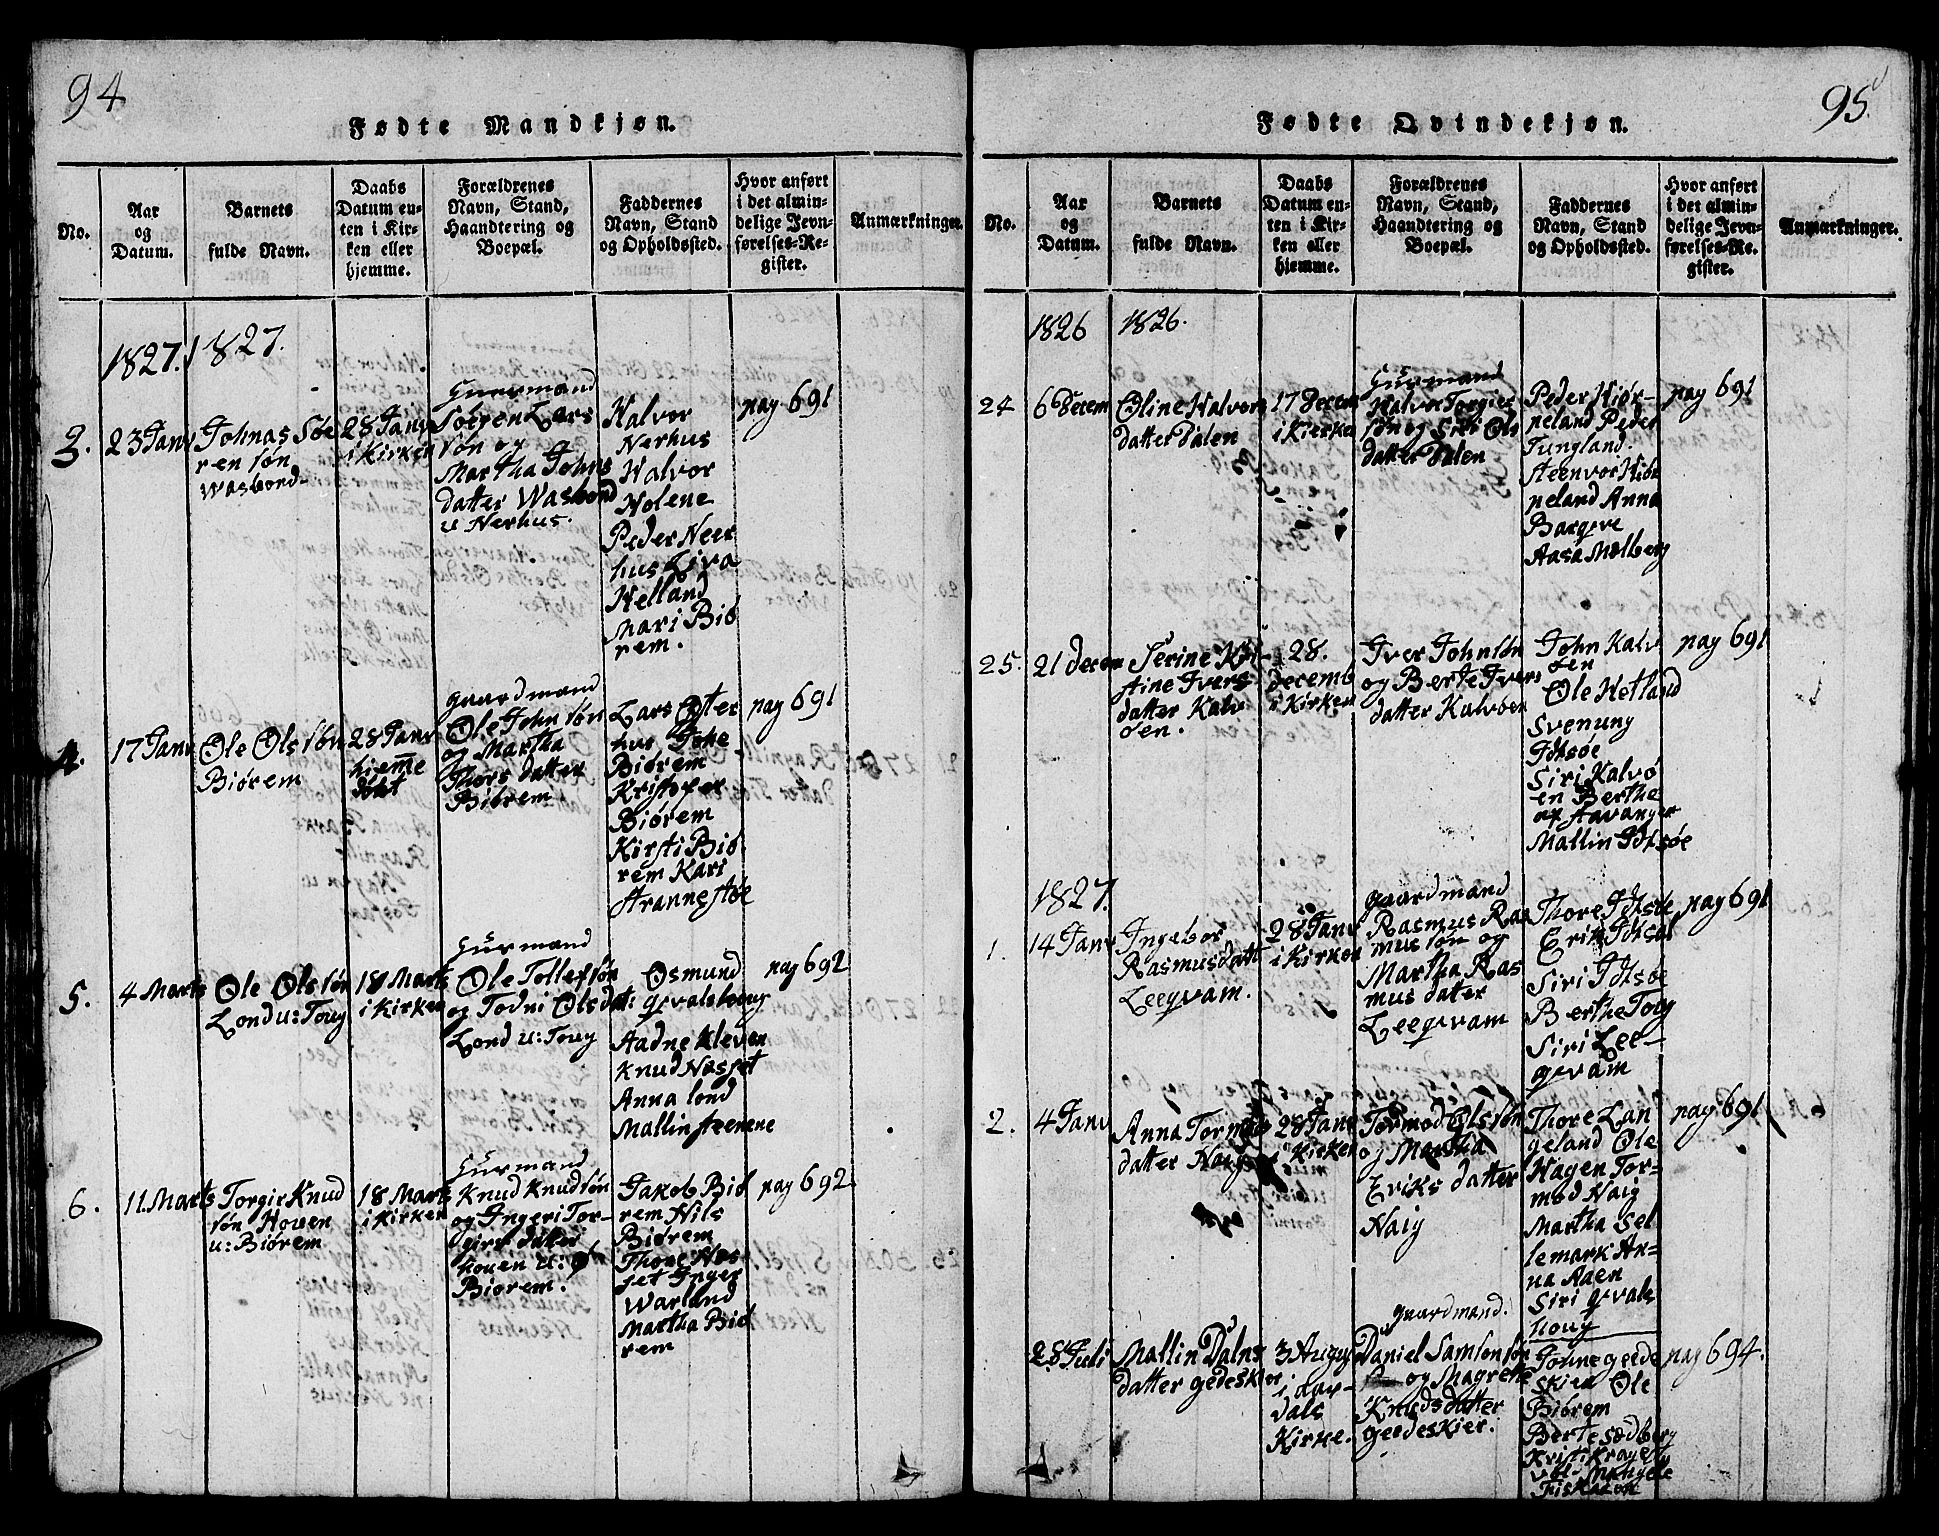 94
Fødte Mandkjøn.
No.
Aar
og
Datum.
Barnets
fulde Navn.
Daabs
Datum en-
ten i Kir-
ken eller
hjemme.
Forældrenes
Navn, Stand,
Haandtering og
Boepæl.
Faddernes
Navn, Stand
og Opholdssted.
Hvor anført
i det almin-
delige Jevn-
førelses-Re-
gister.
Anmærkninger.
1827.
1827.
3.
23 Janv
Johnas Søe
ren søn
Wasbond
28 Janv
i Kirken
Huusmand
Søfren Lars
søn og
Martha Johns
datter Wasbond
u Nerhus.
Halvor
Nerhus
Halvor
Holene
Peder Neer
hus Siva
Helland
Mari Biö
rem.
pag 691
4.
17 Janv
Ole Ols søn
Biørem
28 Janv
hieme
døbt
gaardmand
Ole John søn
og Martha
Thors datter
Biörem
Lars Øster
hus Tøke
Biørem
Kristofer
Biörem
Kirsti Biö
rem Kari
Aranestøe
pag 691
5.
4 Marts
Ole Ols søn
Lond u: Toug
18 Marts
i Kirken
Huusmand
Ole Tollefsøn
og Todni Olsdat:
Lond u: Toug
Osmund
qvalshoug
Aadne Kleven
Knud Næsset
Anna lond
Mallin steenene
pag 692
6.
11. Marts
Torgir Knud
søn Houen
u: Biørem
18 Marts
i Kirken
Huusmand
Knud Knudsøn
og Ingeri Tor-
girs datter
houen u:
Biorem.
Jakob Biö
rem Nils
Biørem
Thore Næs
set Inger
Warland
Martha Biö
rem
pag 692.
95
Fødte Qvindekjøn.
No.
Aar
og
Datum.
Barnets
fulde Navn.
Daabs
Datum en-
ten i Kir-
ken eller
hjemme.
Forældrenes
Navn, Stand,
Haandtering og
Boepæl.
Faddernes
Navn, Stand
og Opholdssted.
Hvor anført
i det almin-
delige Jevn-
førelses-Re-
gister.
Anmærkninger.
1826
1826.
24
6 Decem
Oline Halvors
datter Dalen
17 Decem
i Kirken
Huusmand
Halvor Torgies
søn og Siri Ols
datter Dalen
Peder Hiør-
peland Peder
Tungland.
steenvor Hiör
peland Anna
Bargve
Aasa Molberg
pag 691
25.
21 decem
Serine Kri-
stine Ivers
datter Kalv
öen.
28.
decemb
i Kirken
Iver Johnsøn
og Berte Ivers
datter Kalvöen
John Kalv
öen
Ole Hetland
Svenung
Idsøe
Siri Kalvø
en Berthe
af stavanger
Mallin Idsøe
pag 691
1827.
1.
14 Janv
Ingebor
Rasmusdatt
Leeqvam.
28 Janv
i Kirken
gaardmand
Rasmus Ras
mus søn og
Martha Ras
mus datter
Leeqvam
Thore Idsøe
Erik Idsøe
Siri Idsøe
Berthe Toug
Siri Lee-
qvam
pag 691
2.
4 Janv
Anna Tormods
datter Naig
28 Janv
i Kirken
Tormod Ols søn
og Martha
Eriks datter
Naig
Thore Lan
geland Ole
Hagen Tor-
mod Naig
Martha Sel
lemark An-
na Aaen
Siri qvals
houg
pag 691
28 Juli
Mallin Dalns
datter gedeskier
3 Augu
i aar-
dals
Kirke.
gaardmand.
Daniel Samsonsøn
og Magrete
Knudsdatter
geedeskier.
Johne geede
skier Ole
Biörem
Berte sædberg
Kristi Kragely
pag 694.